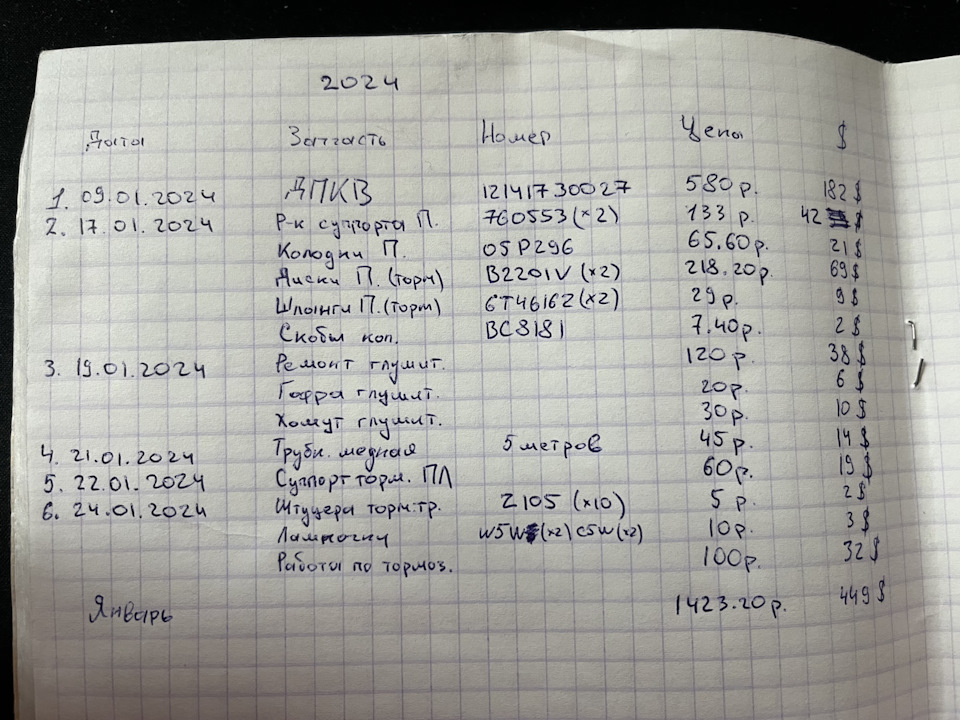 2024
Дата Запчасть Номер Цены $
1. 09.01.2024 ДПКВ 12141730027 580 р. 182 $
2. 17.01.2024 Р-к суппорта П. 760553 (x2) 133 р. 42 $
Колодки П. 05P296 65.60 р. 21 $
Диски П. (торм) B2201V (x2) 218.20 р. 69 $
Шланги П. (торм) 6T46162 (x2) 29 р. 9 $
Скобы кол. BC8181 7.40 р. 2 $
3. 19.01.2024 Ремонт глушит. 120 р. 38 $
Гофра глушит. 20 р. 6 $
Хомут глушит. 30 р. 10 $
4. 21.01.2024 Трубк. медная 5 метров 45 р. 14 $
5. 22.01.2024 Суппорт торм. ПЛ 60 р. 19 $
6. 24.01.2024 Штуцера торм. тр. Z105 (x10) 5 р. 2 $
Лампочки W5W (x2) C5W (x2) 10 р. 3 $
Работы по тормоз. 100 р. 32 $
Январь 1423.20 р. 449 $